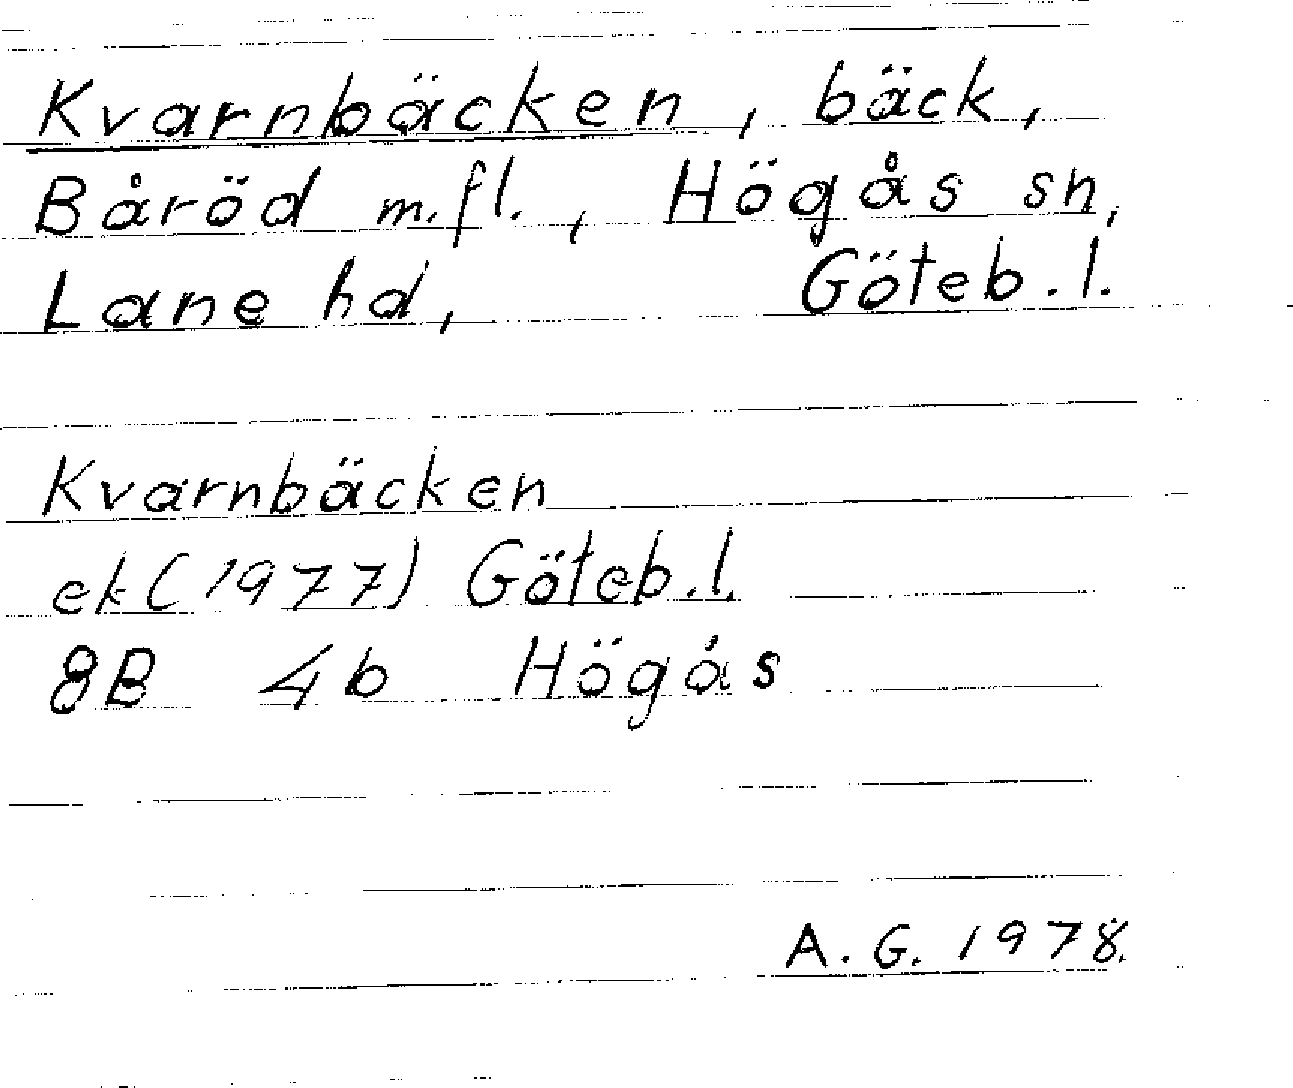 Kvarnbäcken, bäck,
Båröd m.fl., Högås sn,
Lane hd, Göteb.l.
Kvarnbäcken
ek(1977) Göteb.l.
8B 4b Högås
A.G. 1978.